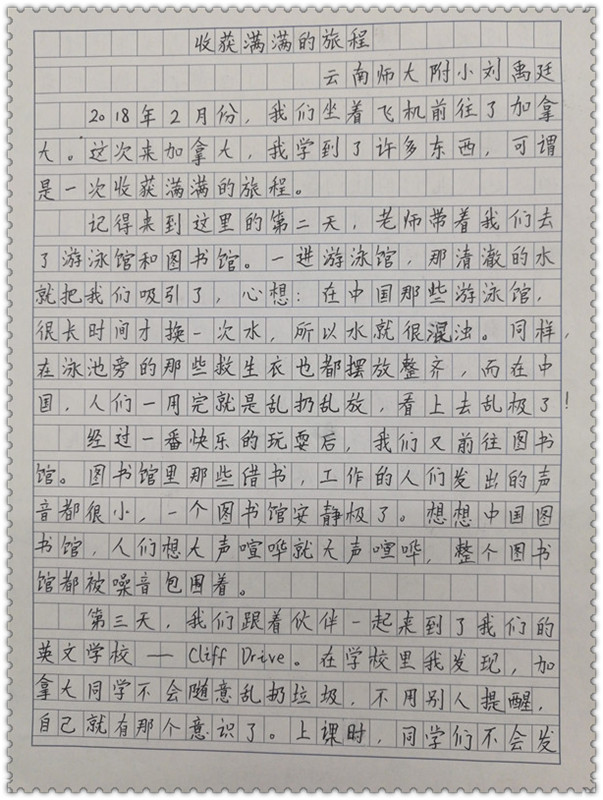 收获满满的旅程
云南师大附小刘禹廷
2018年2月份，我们坐着飞机前往了加拿
大。这次来加拿大，我学到了许多东西，可谓
是一次收获满满的旅程。
记得来到这里的第二天，老师带着我们去
了游泳馆和图书馆。一进游泳馆，那清澈的水
就把我们吸引了，心想：在中国那些游泳馆，
很长时间才换一次水，所以水就很混浊。同样，
在泳池旁的那些救生衣也都摆放整齐，而在中
国，人们一用完就是乱扔乱放，看上去乱极了！
经过一番快乐的玩耍后，我们又前往图书
馆。图书馆里那些借书，工作的人们发出的声
音都很小，一个图书馆安静极了。想想中国图
书馆，人们想大声喧哗就大声喧哗，整个图书
馆都被噪音包围着。
第三天，我们跟着伙伴一起来到了我们的
英文学校——Cliff Drive。在学校里我发现，加
拿大同学不会随意乱扔垃圾，不用别人提醒，
自己就有那个意识了。上课时，同学们不会发